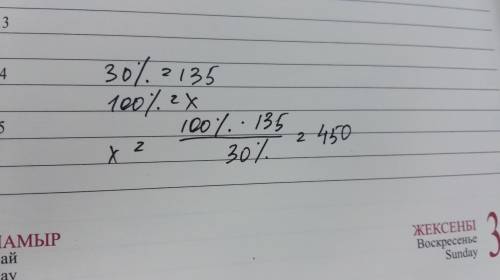 3
4
30% = 135
100% = x
5
x = 100% · 135 / 30% = 450
МАМЫР
ай
ау
ЖЕКСЕНБІ
Воскресенье
Sunday
3